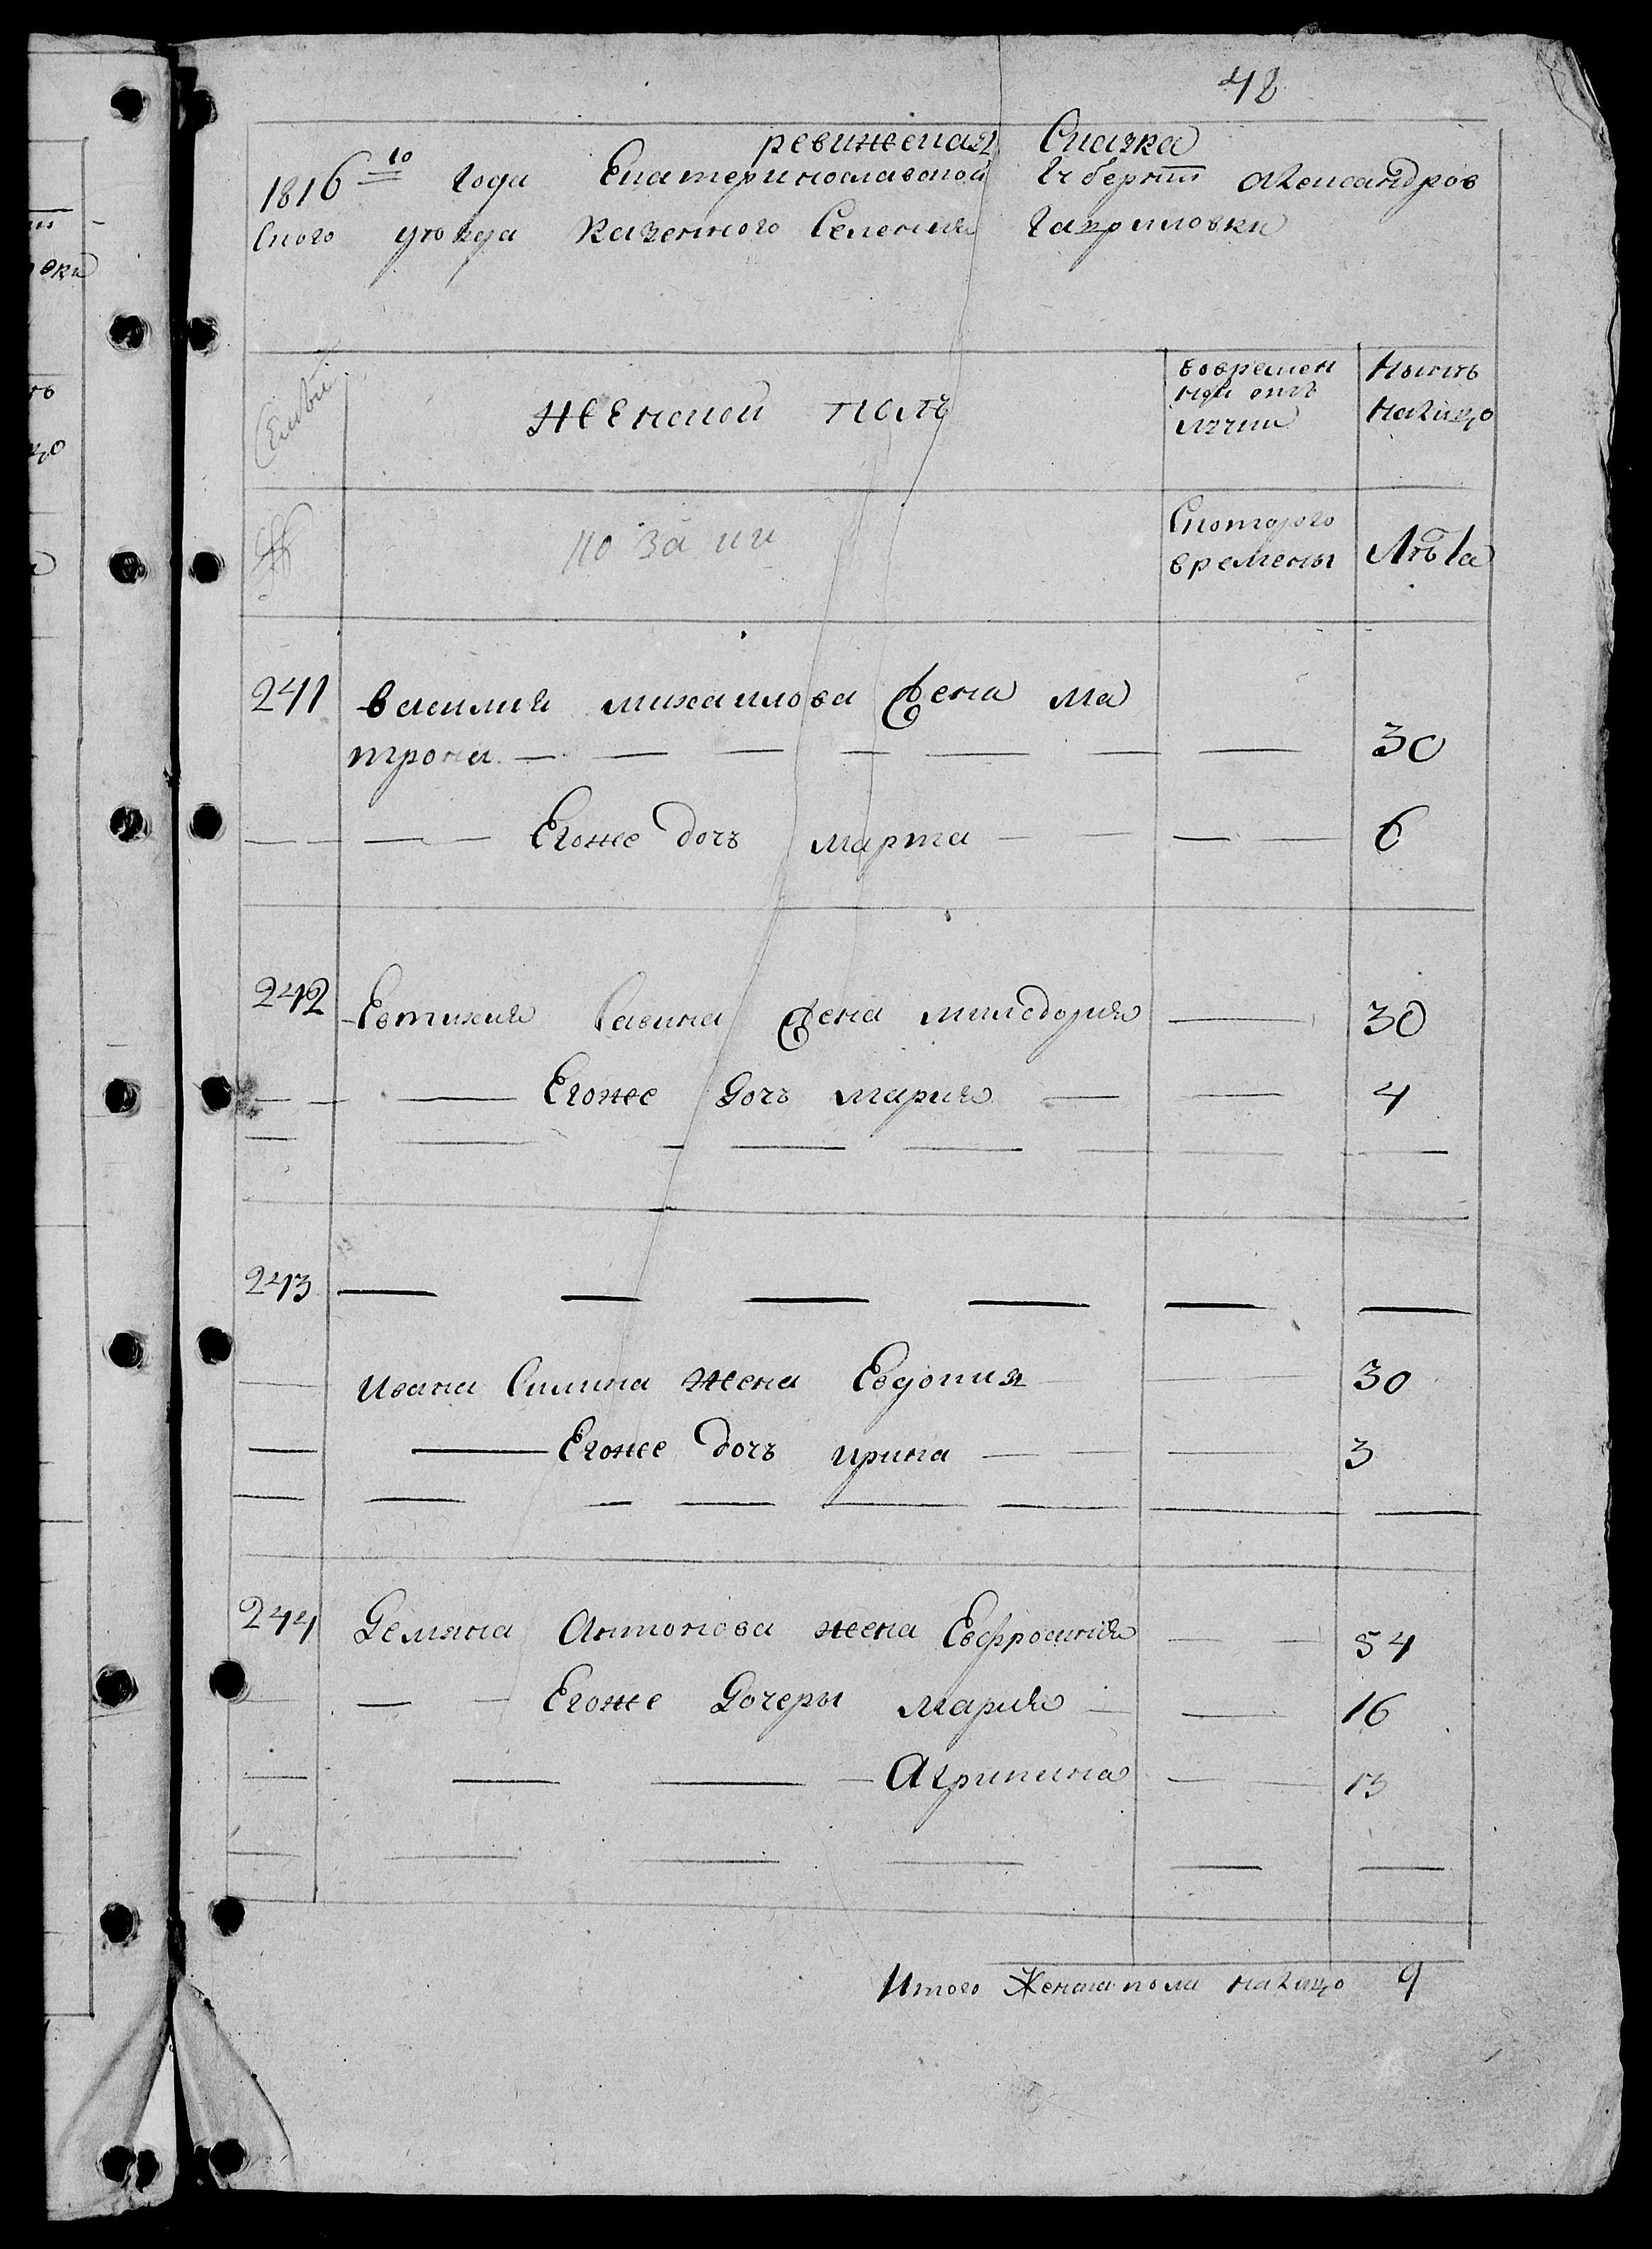 48
ревижская Сказка
1816го года Екатеринославской Губернии Александров
ского уѣзда Казенного Селения Гавриловки
Семьи
женской полъ
вовремен
ной отъ
лучки
Нынѣ
налицо
Скоторого
времены
Лѣта
241 Василия михаилова жена ма
трона 30
Егоже дочь марта 6
242 Евтихия Савина жена милодория 30
Егоже дочь мария 4
243
Ивана Силина жена Евдокия 30
Егоже дочь ирина 3
244 Демяна Антонова жена Евфросиния 54
Егоже дочеры мария 16
Агрипина 13
Итого Женска пола налицо 9